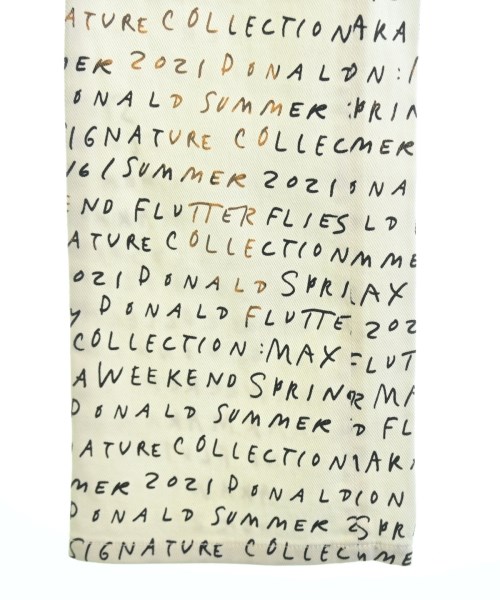 ATURE COLLECTIONAKA
ER 2021 DONALDN:
ONALD SUMMER :PRIN
IGNATURE COLLECMER
/6/SUMMER 2021ONA
END FLUTTERFLIES LD
ATURE COLLECTIONMME
021 DONALD SPRILAX
y DONALD FLUTTE 202
COLLECTION:MAX FLUT
AWEEKEND SPRING MA
DONALD SUMMER D FL
ATURE COLLECTIONIAK
MER 2021 DONALDION
DONALD SUMMER SPR
SIGNATURE COLLECUME